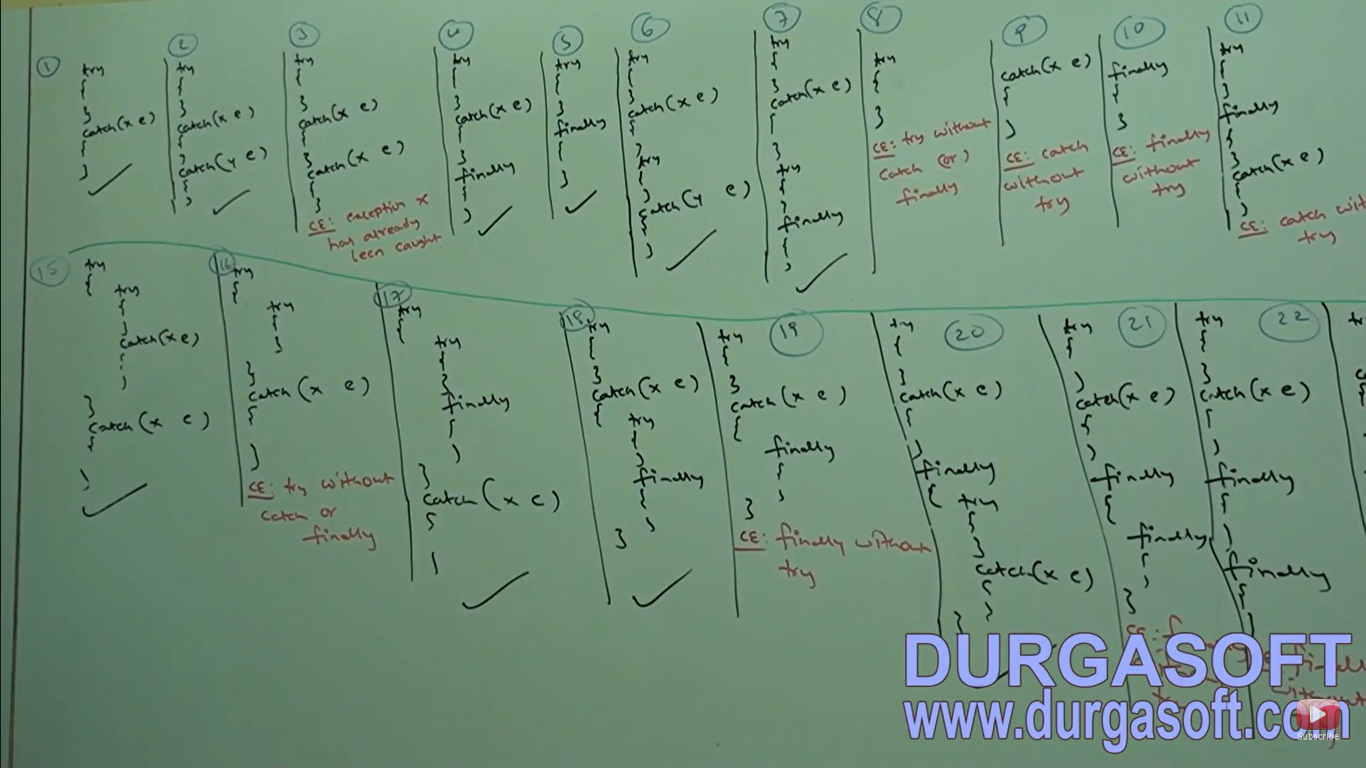 1
try
{
}
catch(x e)
{
}
2
try
{
}
catch(x e)
{
}
catch(y e)
{
}
3
try
{
}
catch(x e)
{
}
catch(x e)
{
}
CE: exception x
has already
been caught
4
try
{
}
catch(x e)
{
}
finally
{
}
5
try
{
}
finally
{
}
6
try
{
}
catch(x e)
{
}
try
{
}
catch(y e)
{
}
7
try
{
}
catch(x e)
{
}
try
{
}
finally
{
}
8
try
{
}
CE: try without
catch (or)
finally
9
catch(x e)
{
}
CE: catch
without
try
10
finally
{
}
CE: finally
without
try
11
try
{
}
finally
{
}
catch(x e)
{
}
CE: catch with
try
15
try
{
try
{
}
catch(x e)
{
}
}
catch(x e)
{
}
16
try
{
try
{
}
}
catch(x e)
{
}
CE: try without
catch or
finally
17
try
{
try
{
}
finally
{
}
}
catch(x e)
{
}
18
try
{
}
catch(x e)
{
try
{
}
finally
{
}
}
19
try
{
}
catch(x e)
{
finally
{
}
}
CE: finally without
try
20
try
{
}
catch(x e)
{
}
finally
{
try
{
}
catch(x e)
{
}
}
21
try
{
}
catch(x e)
{
}
finally
{
finally
{
}
}
CE:
22
try
{
}
catch(x e)
{
}
finally
{
}
finally
{
}
DURGASOFT
www.durgasoft.com
Subscribe